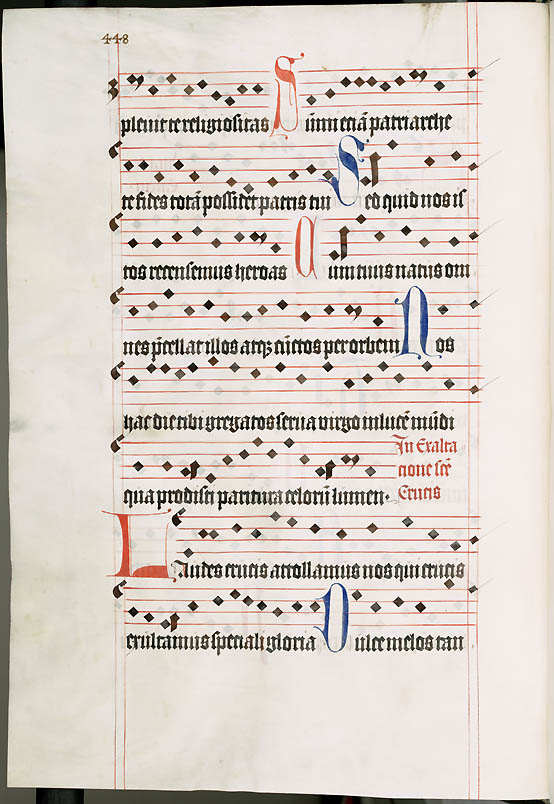 448
pleuit te religiositas Sūmi etiā patriarche
te fides totā possidet patris tui Sed quid nos is
tos recensemus heroas Cum tuus natus om
nes p̄cellat illos atqꝫ cūctos per orbem Nos
hac die tibi gregatos serua virgo in lucē mūdi
In Exalta
qua prodisti paritura celorū lumen.
tione scē
Crucis
Laudes crucis attollamus nos qui crucis
exultamus speciali gloria Dulce melos tan